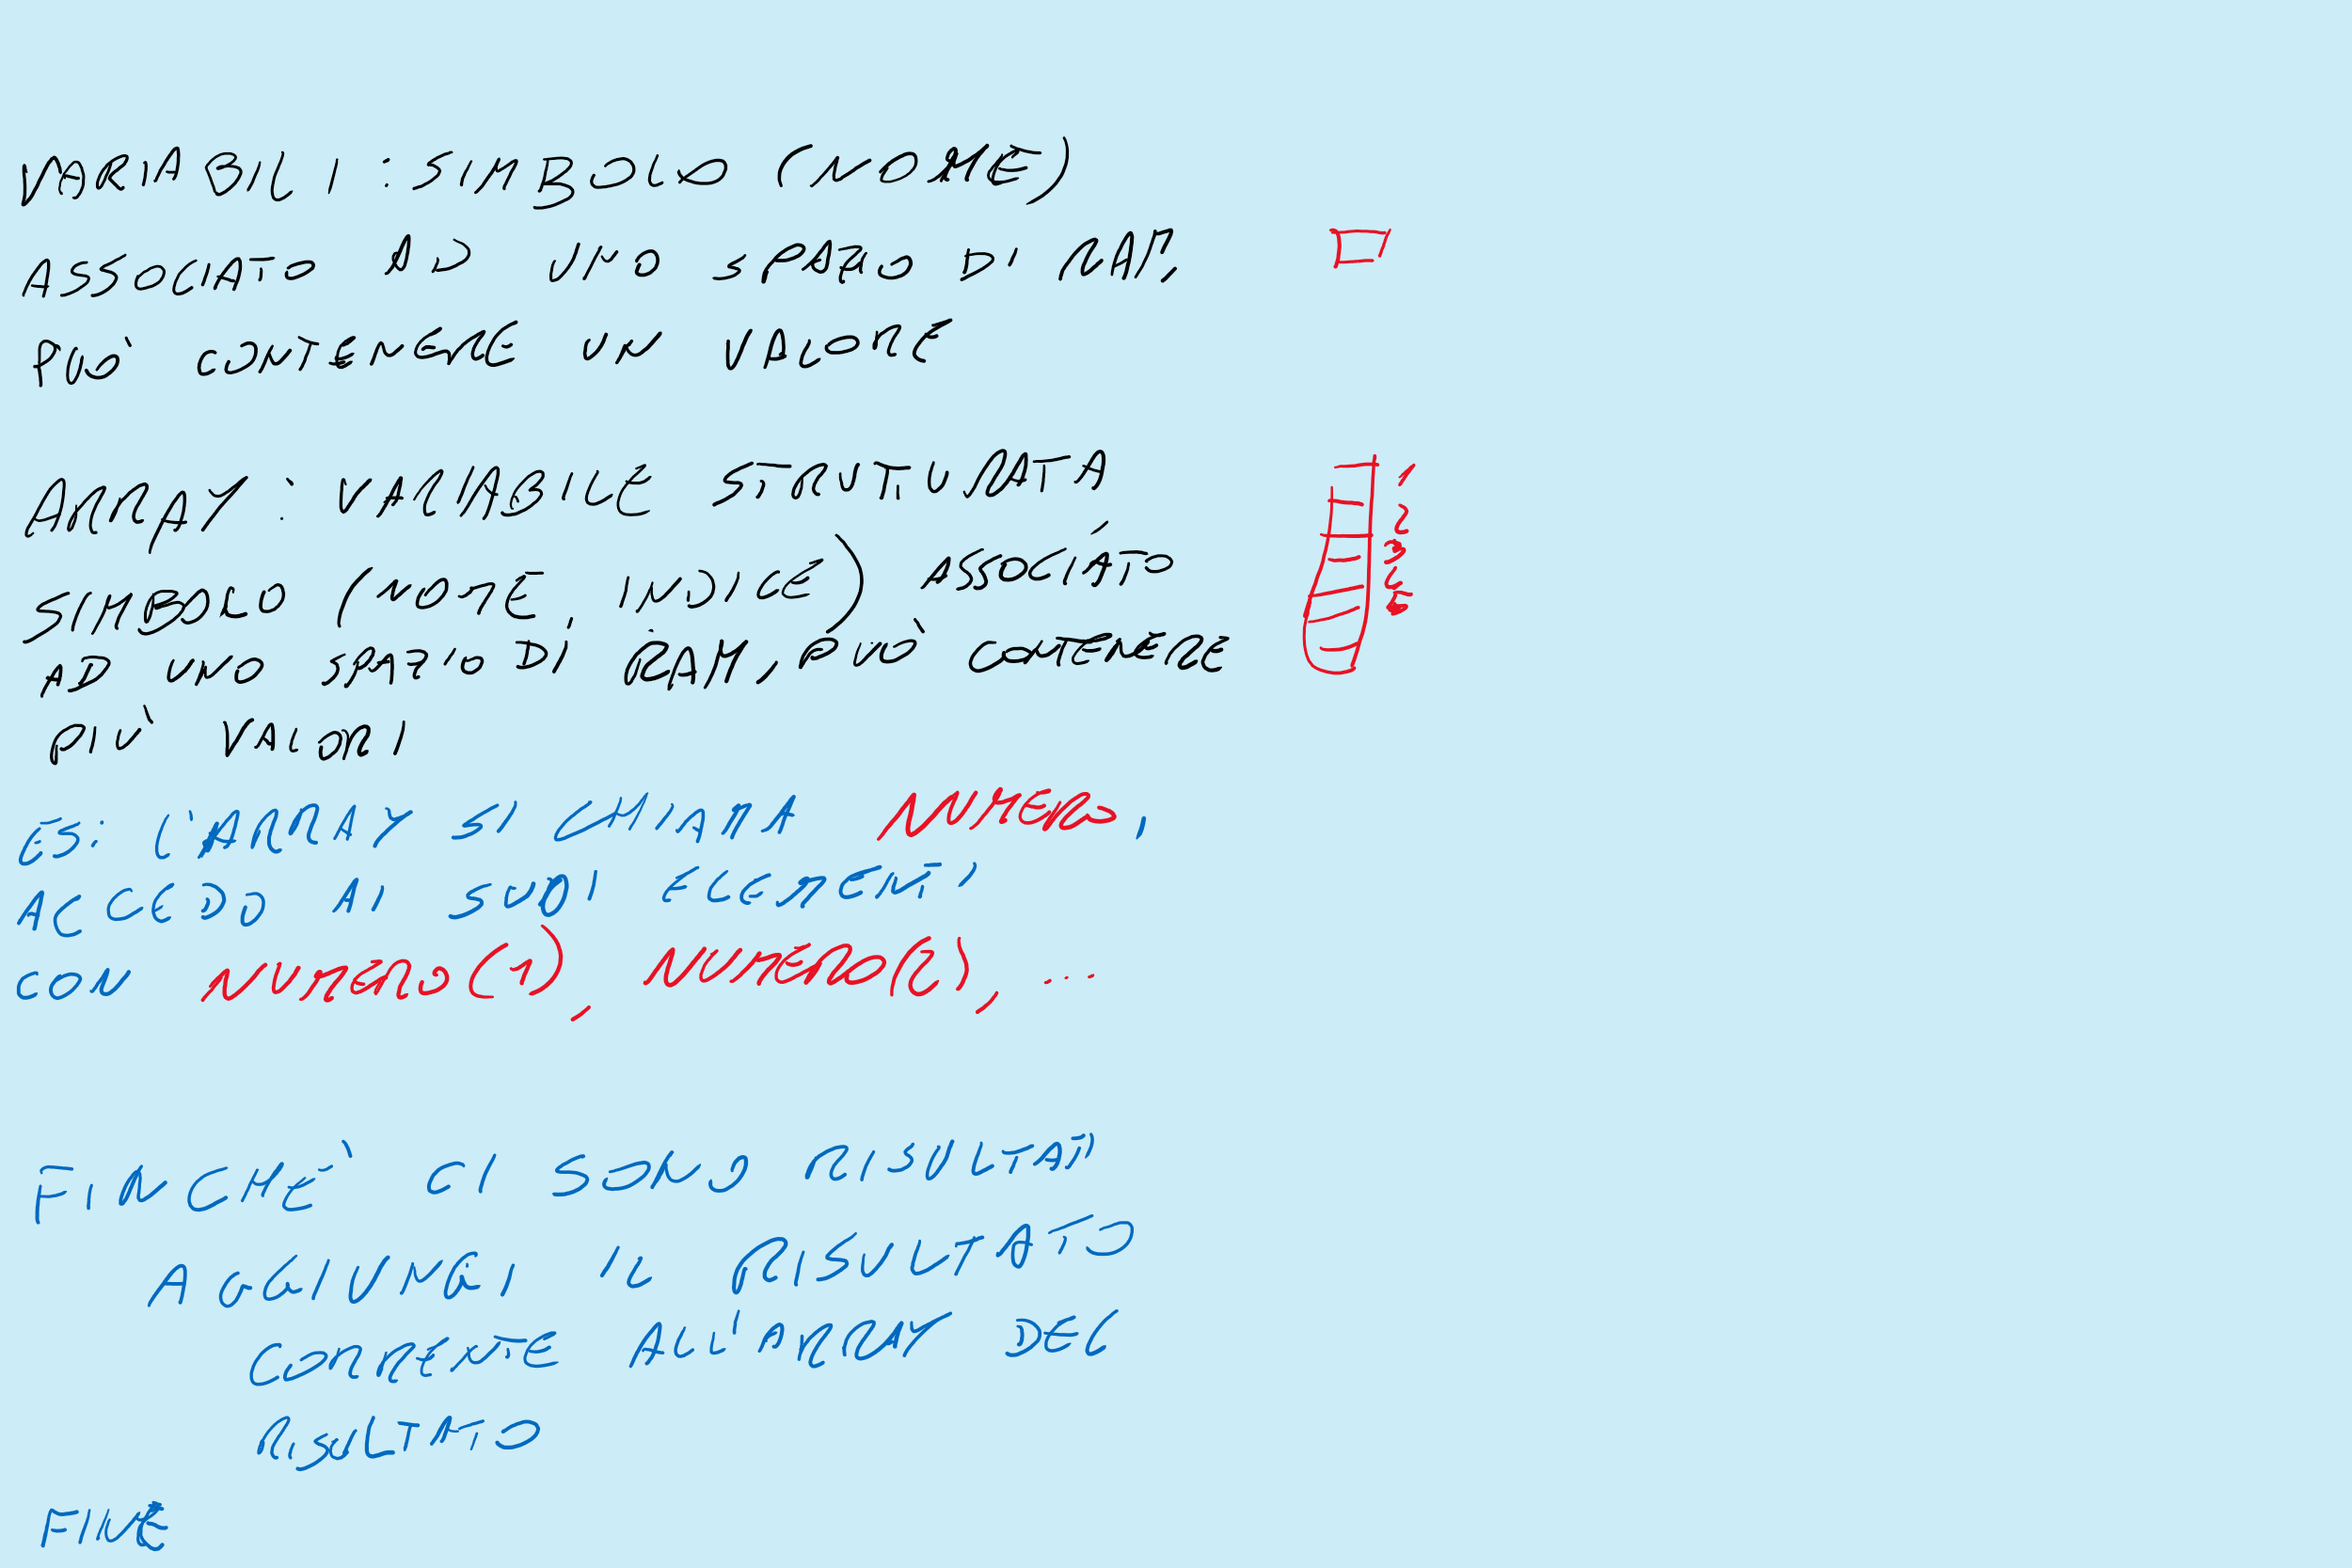 VARIABILI : SIMBOLO (NOME)
ASSOCIATO AD UNO SPAZIO DI RAM,
PUÒ CONTENERE UN VALORE
ARRAY : VARIABILE STRUTTURATA
1
2
3
4
5
SIMBOLO (NOME, INDICE) ASSOCIATO
AD UNO SPAZIO DI RAM, PUÒ CONTENERE
PIÙ VALORI
ES: L'ARRAY SI CHIAMA NUMERO,
ACCEDO AI SUOI ELEMENTI
CON NUMERO(1), NUMERO(2), ...
FINCHÈ CI SONO RISULTATI
AGGIUNGI IL RISULTATO
CORRENTE ALL'ARRAY DEL
RISULTATO
FINE